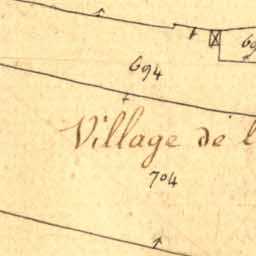 694
Village de l
704